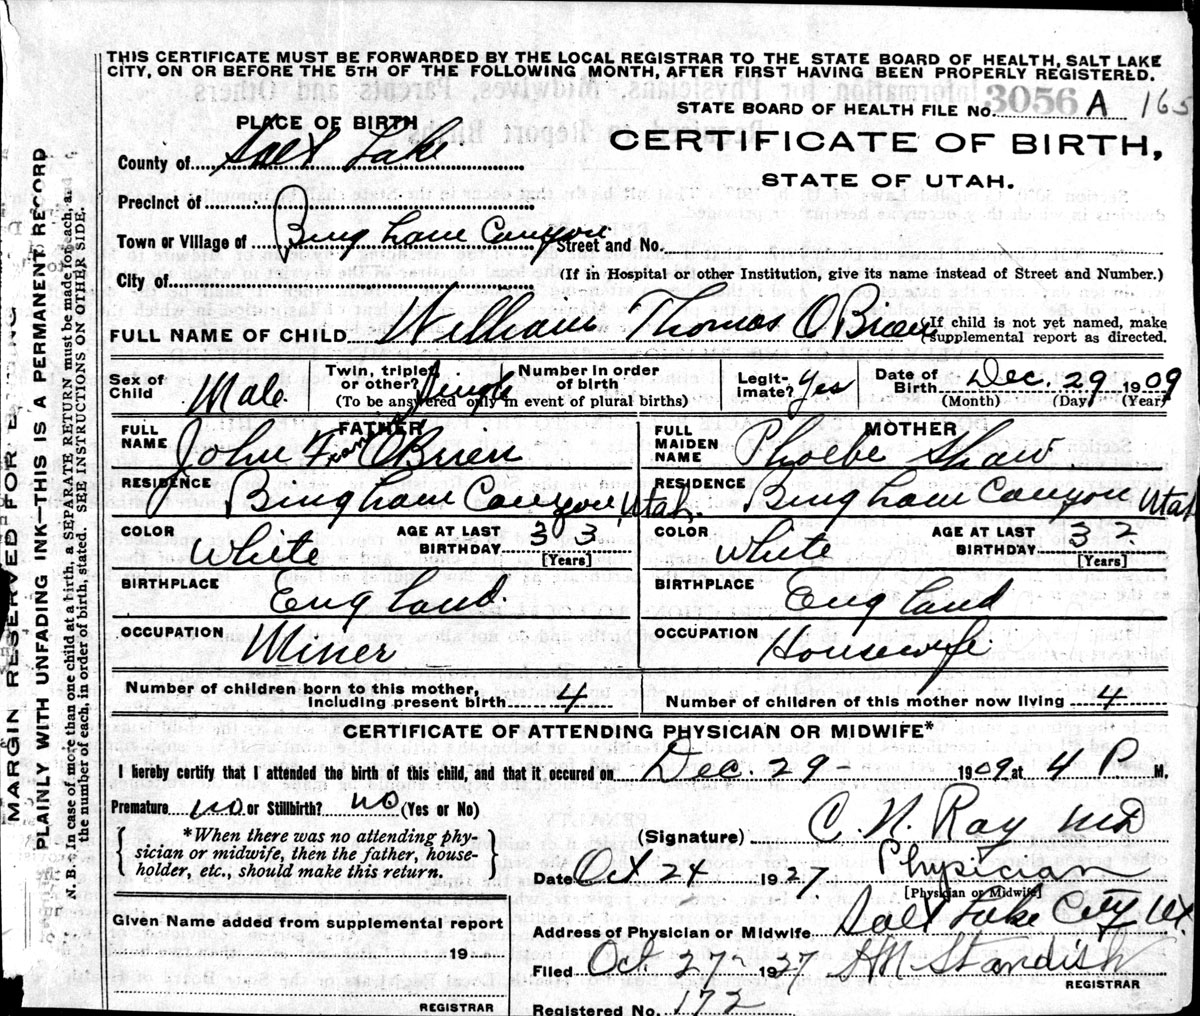 THIS CERTIFICATE MUST BE FORWARDED BY THE LOCAL REGISTRAR TO THE STATE BOARD OF HEALTH, SALT LAKE
CITY, ON OR BEFORE THE 5TH OF THE FOLLOWING MONTH, AFTER FIRST HAVING BEEN PROPERLY REGISTERED.
STATE BOARD OF HEALTH FILE NO. 3056 A 165
PLACE OF BIRTH
CERTIFICATE OF BIRTH,
STATE OF UTAH.
County of Salt Lake
Precinct of
Town or Village of Bingham Canyon Street and No.
City of (If in Hospital or other Institution, give its name instead of Street and Number.)
FULL NAME OF CHILD William Thomas O'Brien (If child is not yet named, make
supplemental report as directed.
Sex of Child Male Twin, triplet or other? Single Number in order of birth Legitimate? Yes Date of Birth Dec. 29 1909
(To be answered only in event of plural births) (Month) (Day) (Year)
FATHER MOTHER
FULL NAME John Fran O'Brien FULL MAIDEN NAME Phoebe Shaw
RESIDENCE Bingham Canyon, Utah. RESIDENCE Bingham Canyon Utah
COLOR White AGE AT LAST BIRTHDAY 33 [Years] COLOR White AGE AT LAST BIRTHDAY 32 [Years]
BIRTHPLACE England. BIRTHPLACE England
OCCUPATION Miner OCCUPATION Housewife
Number of children born to this mother, including present birth 4 Number of children of this mother now living 4
CERTIFICATE OF ATTENDING PHYSICIAN OR MIDWIFE*
I hereby certify that I attended the birth of this child, and that it occured on Dec. 29 - 1909, at 4 P. M.
Premature no or Stillbirth? no (Yes or No)
*When there was no attending phy-
sician or midwife, then the father, house-
holder, etc., should make this return.
(Signature) C. N. Ray MD
Date Oct 24 1927 Physician
[Physician or Midwife]
Given Name added from supplemental report
19
REGISTRAR
Address of Physician or Midwife Salt Lake City Ut.
Filed Oct. 27- 1927 HM Standish
REGISTRAR
Registered No. 172
MARGIN RESERVED FOR
PLAINLY WITH UNFADING INK—THIS IS A PERMANENT RECORD
N. B.—In case of more than one child at a birth, a SEPARATE RETURN must be made for each, and
the number of each, in order of birth, stated. SEE INSTRUCTIONS ON OTHER SIDE.